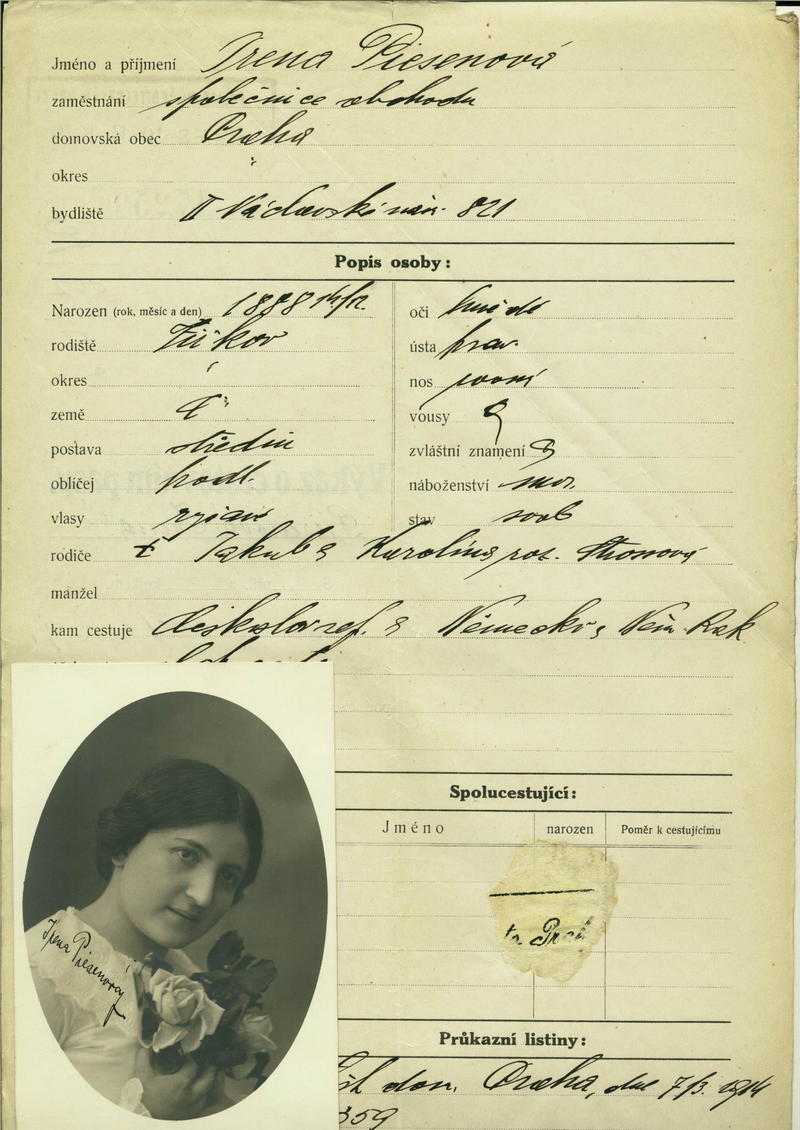 Jméno a příjmení Irena Piesenová
zaměstnání společnice obchodu
domovská obec Praha
okres "
bydliště II Václavské nám. 821
Popis osoby:
Narozen (rok, měsíc a den) 1888 14/12.
rodiště Žižkov
okres
země Č
postava střední
obličej podl.
vlasy
oči hnědé
ústa prav.
nos rovný
vousy
zvláštní znamení
náboženství
stav svob
rodiče † Jakub a Karolina roz.
manžel
kam cestuje Českoslov. a Německo, Něm. Rak
Spolucestující:
Jméno narozen Poměr k cestujícímu
Irena Piesenová
Průkazní listiny:
dom. Praha, dne 7/3. 1914
359